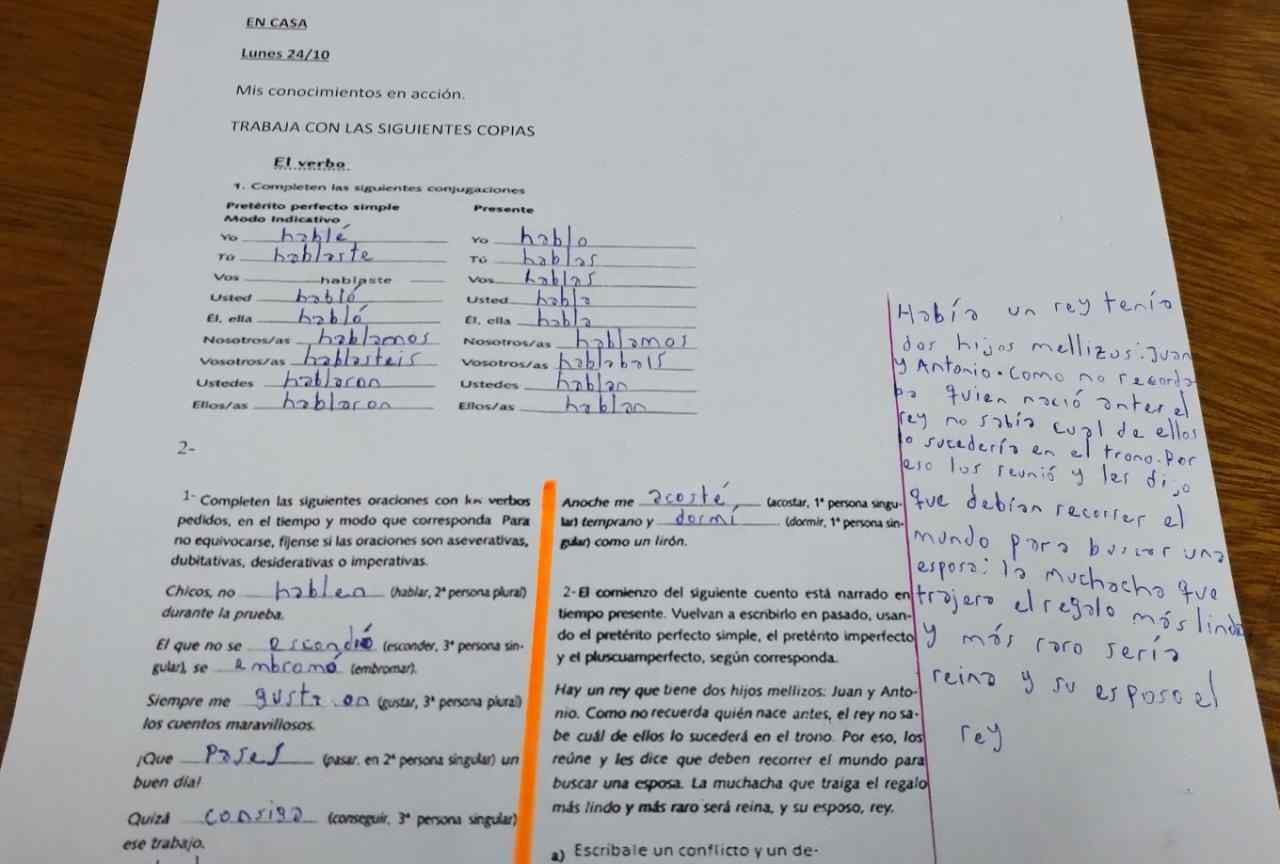 EN CASA
Lunes 24/10
Mis conocimientos en acción.
TRABAJA CON LAS SIGUIENTES COPIAS
El verbo.
1. Completen las siguientes conjugaciones
Pretérito perfecto simple
Modo Indicativo
Yo hablé
Tú hablaste
Vos hablaste
Usted habló
Él, ella habló
Nosotros/as hablamos
Vosotros/as hablasteis
Ustedes hablaron
Ellos/as hablaron
Presente
Yo hablo
Tú hablas
Vos hablas
Usted habla
Él, ella habla
Nosotros/as hablamos
Vosotros/as hablabais
Ustedes hablan
Ellos/as hablan
2-
1- Completen las siguientes oraciones con los verbos
pedidos, en el tiempo y modo que corresponda Para
no equivocarse, fíjense si las oraciones son aseverativas,
dubitativas, desiderativas o imperativas.
Chicos, no hablen (hablar, 2ª persona plural)
durante la prueba.
El que no se escondió (esconder, 3ª persona sin-
gular), se embromó (embromar).
Siempre me gustaron (gustar, 3ª persona plural)
los cuentos maravillosos.
¡Que pases (pasar, en 2ª persona singular) un
buen día!
Quizá consiga (conseguir, 3ª persona singular)
ese trabajo.
Anoche me acosté (acostar, 1ª persona singu-
lar) temprano y dormí (dormir, 1ª persona sin-
gular) como un lirón.
2- El comienzo del siguiente cuento está narrado en
tiempo presente. Vuelvan a escribirlo en pasado, usan-
do el pretérito perfecto simple, el pretérito imperfecto
y el pluscuamperfecto, según corresponda.
Hay un rey que tiene dos hijos mellizos: Juan y Anto-
nio. Como no recuerda quién nace antes, el rey no sa-
be cuál de ellos lo sucederá en el trono. Por eso, los
reúne y les dice que deben recorrer el mundo para
buscar una esposa. La muchacha que traiga el regalo
más lindo y más raro será reina, y su esposo, rey.
a) Escribale un conflicto y un de-
Había un rey tenía
dos hijos mellizos: Juan
y Antonio. Como no recorda
ba quien nació antes el
rey no sabía cual de ellos
lo sucedería en el trono. Por
eso los reunió y les dijo
que debían recorrer el
mundo para buscar una
esposa: la muchacha que
trajera el regalo más lindo
y más raro sería
reina y su esposo el
rey